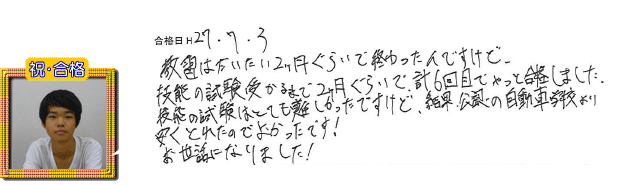 祝・合格
合格日 H27.7.3
教習はだいたい2ヶ月ぐらいで終わったんですけど、
技能の試験受かるまで2ヶ月ぐらいで、計6回目でやっと合格しました。
技能の試験はとても難しかったですけど、結果、公認の自動車学校より
安くとれたのでよかったです!
お世話になりました!